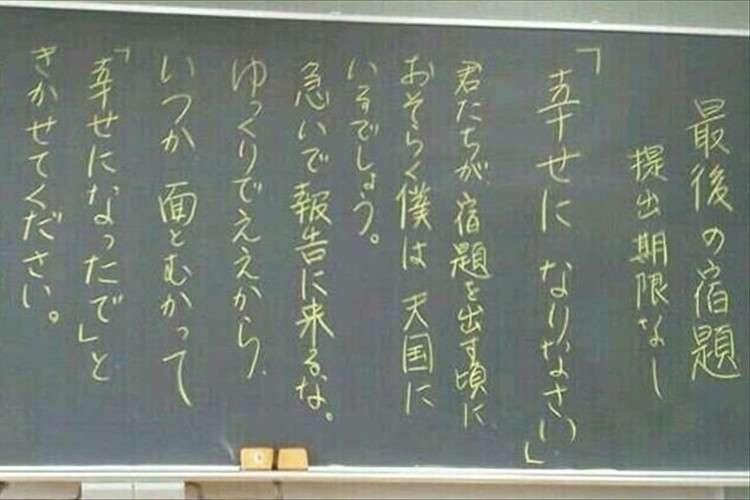 最後の宿題
提出期限なし
「幸せに なりなさい」
君たちが宿題を出す頃に
おそらく僕は 天国に
いるでしょう。
急いで報告に来るな。
ゆっくりでええから、
いつか 面とむかって
「幸せになったで」と
きかせてください。